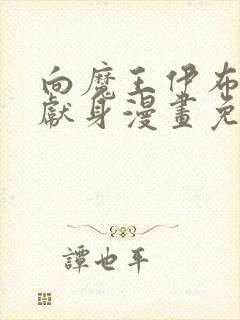 向魔王伊布
獻身漫畫免
譚也平